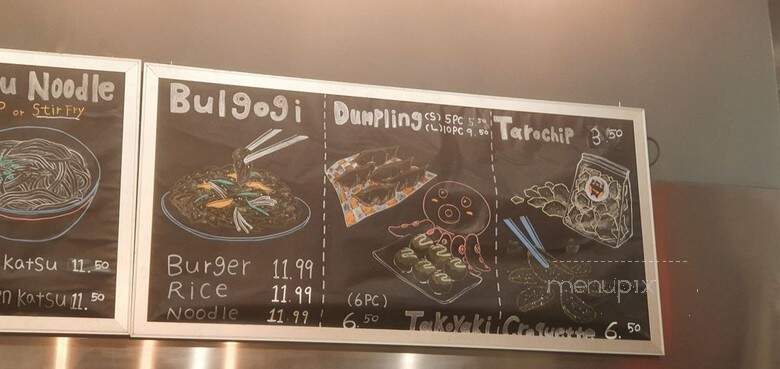 u Noodle
or Stir Fry
Katsu 11.50
n Katsu 11.50
Bulgogi
Burger 11.99
Rice 11.99
Noodle 11.99
Dumpling (S) 5PC 5.50
(L) 10PC 9.50
(6PC)
6.50 Takoyaki
Tarochip 3.50
Croquette 6.50
menupix